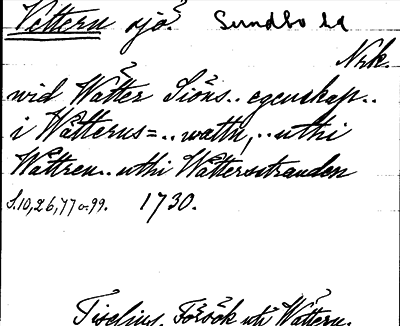 Vettern sjö. Sundbo hd
Nrk.
wid Wätter Siöns.. egenskap..
i Wätterns=..wattn,..uthi
Wättren..uthi Wättersstranden
S.10,26,77 o.99. 1730.
Tiselius, Försök uti Wättern.